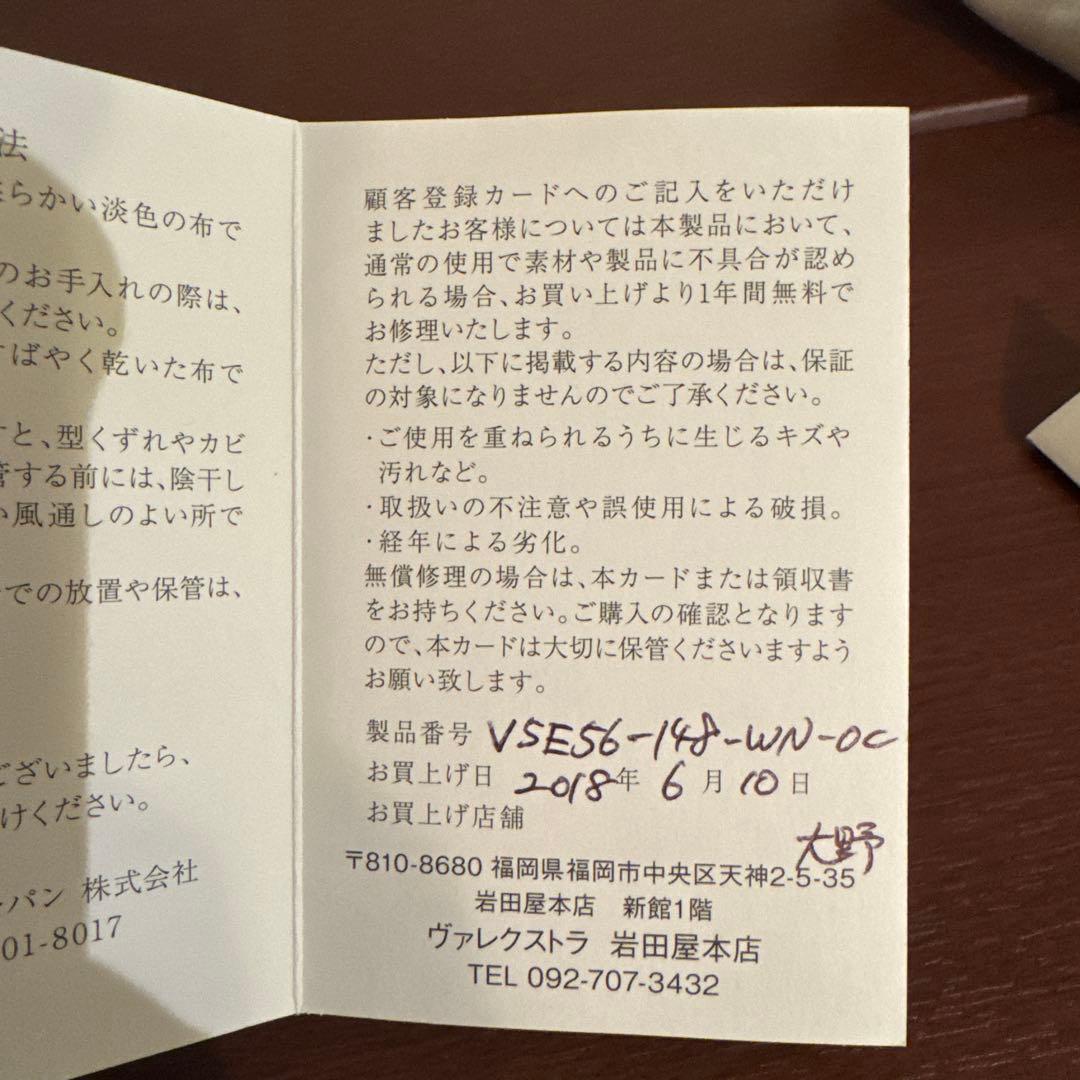 法
らかい淡色の布で
のお手入れの際は、
ください。
ばやく乾いた布で
すと、型くずれやカビ
管する前には、陰干し
い風通しのよい所で
での放置や保管は、
ございましたら、
けください。
パン 株式会社
01-8017
顧客登録カードへのご記入をいただけ
ましたお客様については本製品において、
通常の使用で素材や製品に不具合が認め
られる場合、お買い上げより1年間無料で
お修理いたします。
ただし、以下に掲載する内容の場合は、保証
の対象になりませんのでご了承ください。
・ご使用を重ねられるうちに生じるキズや
汚れなど。
・取扱いの不注意や誤使用による破損。
・経年による劣化。
無償修理の場合は、本カードまたは領収書
をお持ちください。ご購入の確認となります
ので、本カードは大切に保管くださいますよう
お願い致します。
製品番号 V5E56-148-WN-OC
お買上げ日 2018年 6月 10日
お買上げ店舗
大野
〒810-8680 福岡県福岡市中央区天神2-5-35
岩田屋本店 新館1階
ヴァレクストラ 岩田屋本店
TEL 092-707-3432